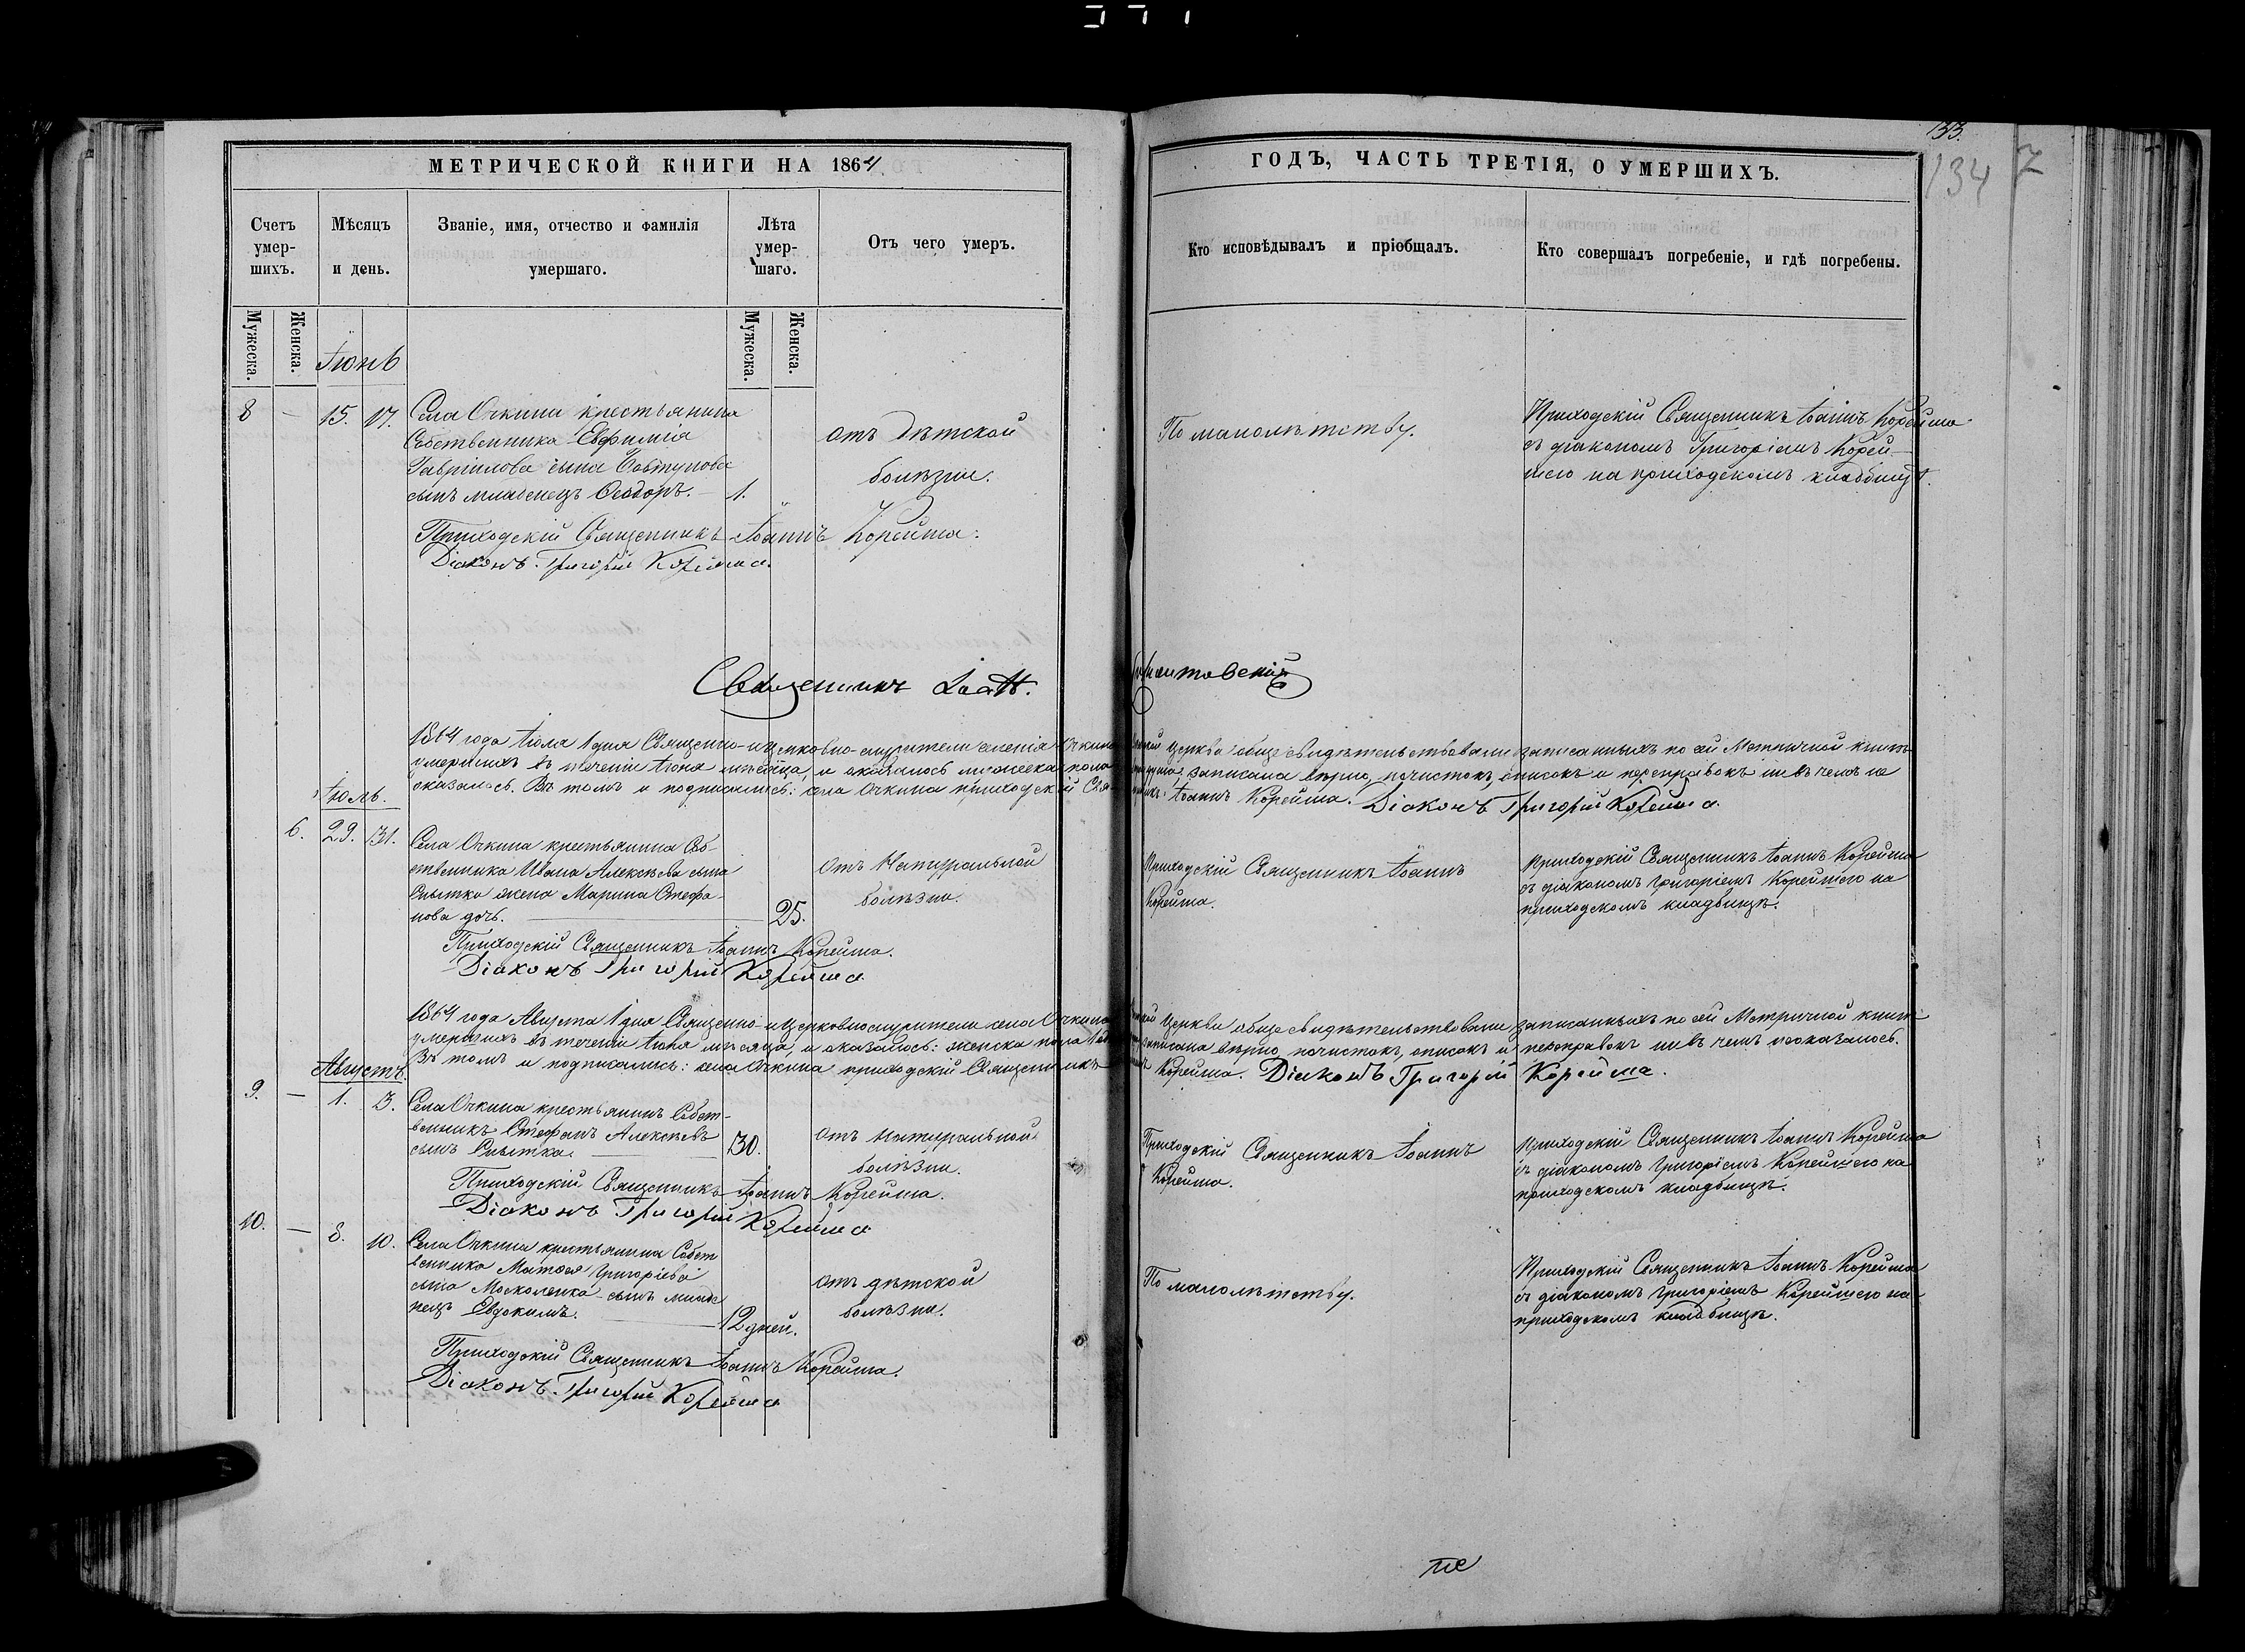 133.
134
7
МЕТРИЧЕСКОЙ КНИГИ НА 1864
ГОДЪ, ЧАСТЬ ТРЕТІЯ, О УМЕРШИХЪ.
Счетъ умер-шихъ.
Мѣсяцъ и день.
Званіе, имя, отчество и фамилія умершаго.
Лѣта умер-шаго.
Отъ чего умеръ.
Кто исповѣдывалъ и пріобщалъ.
Кто совершалъ погребеніе, и гдѣ погребены.
Мужеска.
Женска.
Мужеска.
Женска.
Іюнь
8 — 15. 17.
Села Очкина крестьянина
Собственника Евфимія
Гавріилова сына Совтунова
сынъ младенецъ Ѳеодоръ. — 1.
отъ дѣтской
болѣзни.
По малолѣтству.
Приходскій Священникъ Іоаннъ Корейша
съ діакономъ Григоріемъ Корей-
шею на приходскомъ кладбищѣ.
Приходскій Священникъ Іоаннъ Корейша:
Діаконъ Григорій Корейша.
Священникъ
1864 года Іюля 1 дня Священно-и церковно-служители селенія Очкина
церкви обще свидѣтельствовали записанныхъ по сей Метричной книгѣ
умершихъ въ теченіи Іюня мѣсяца, и оказалось мужеска пола
записана вѣрно, почистокъ, описокъ и переправокъ ни въ чемъ не
оказалось. Въ томъ и подписались: села Очкина приходскій
Іоаннъ Корейша. Діаконъ Григорій Корейша.
Іюль.
6. 29. 31.
Села Очкина крестьянина Соб-
ственника Ивана Алексѣева сына
Снытка жена Марина Стефа-
нова дочь. 25.
отъ Натуральной
болѣзни.
Приходскій Священникъ Іоаннъ
Корейша.
Приходскій Священникъ Іоаннъ Корейша
съ діакономъ Григоріемъ Корейшею на
приходскомъ кладбищѣ.
Приходскій Священникъ Іоаннъ Корейша.
Діаконъ Григорій Корейша.
1864 года Августа 1 дня Священно-и церковнослужители села Очкина
церкви обще свидѣтельствовали записанныхъ по сей Метричной книгѣ
умершихъ въ теченіи Іюля мѣсяца, и оказалось: женска пола
записана вѣрно, почистокъ, описокъ и переправокъ ни въ чемъ неоказалось.
Въ томъ и подписались: села Очкина приходскій Священникъ
Корейша. Діаконъ Григорій Корейша.
Августъ.
9. — 1. 3.
Села Очкина крестьянинъ Собст-
венникъ Стефанъ Алексѣевъ
сынъ Снытка. 30.
отъ натуральной
болѣзни.
Приходскій Священникъ Іоаннъ
Корейша.
Приходскій Священникъ Іоаннъ Корейша
съ діакономъ Григоріемъ Корейшею на
приходскомъ кладбищѣ.
Приходскій Священникъ Іоаннъ Корейша.
Діаконъ Григорій Корейша
10. — 8. 10.
Села Очкина крестьянина Собст
венника Матѳея Григоріева
сына Москаленка сынъ младе
нецъ Евдокимъ. 12 дней.
отъ дѣтской
болѣзни.
По малолѣтству.
Приходскій Священникъ Іоаннъ Корейша
съ діакономъ Григоріемъ Корейшею на
приходскомъ кладбищѣ.
Приходскій Священникъ Іоаннъ Корейша.
Діаконъ Григорій Корейша